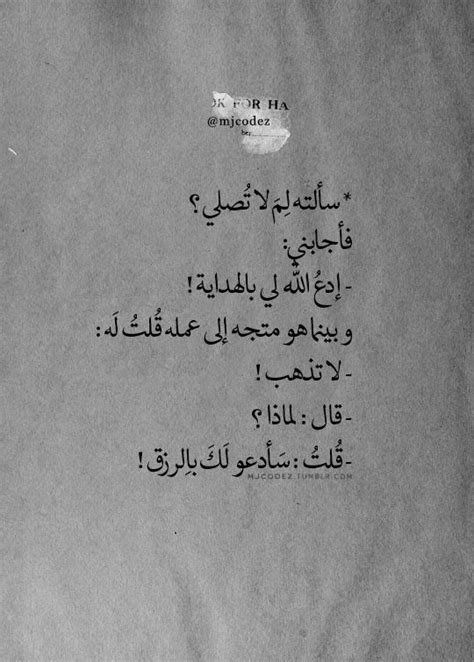 OK FOR HA
@mjcodez
her
* سألته لِمَ لا تُصلي ؟
فأجابني:
- إدعُ الله لي بالهداية !
و بينما هو متجه إلى عمله قُلتُ لَه :
- لا تذهب !
- قال : لماذا ؟
- قُلتُ : سَأدعو لَكَ بِالرزق !
MJCODEZ.TUMBLR.COM